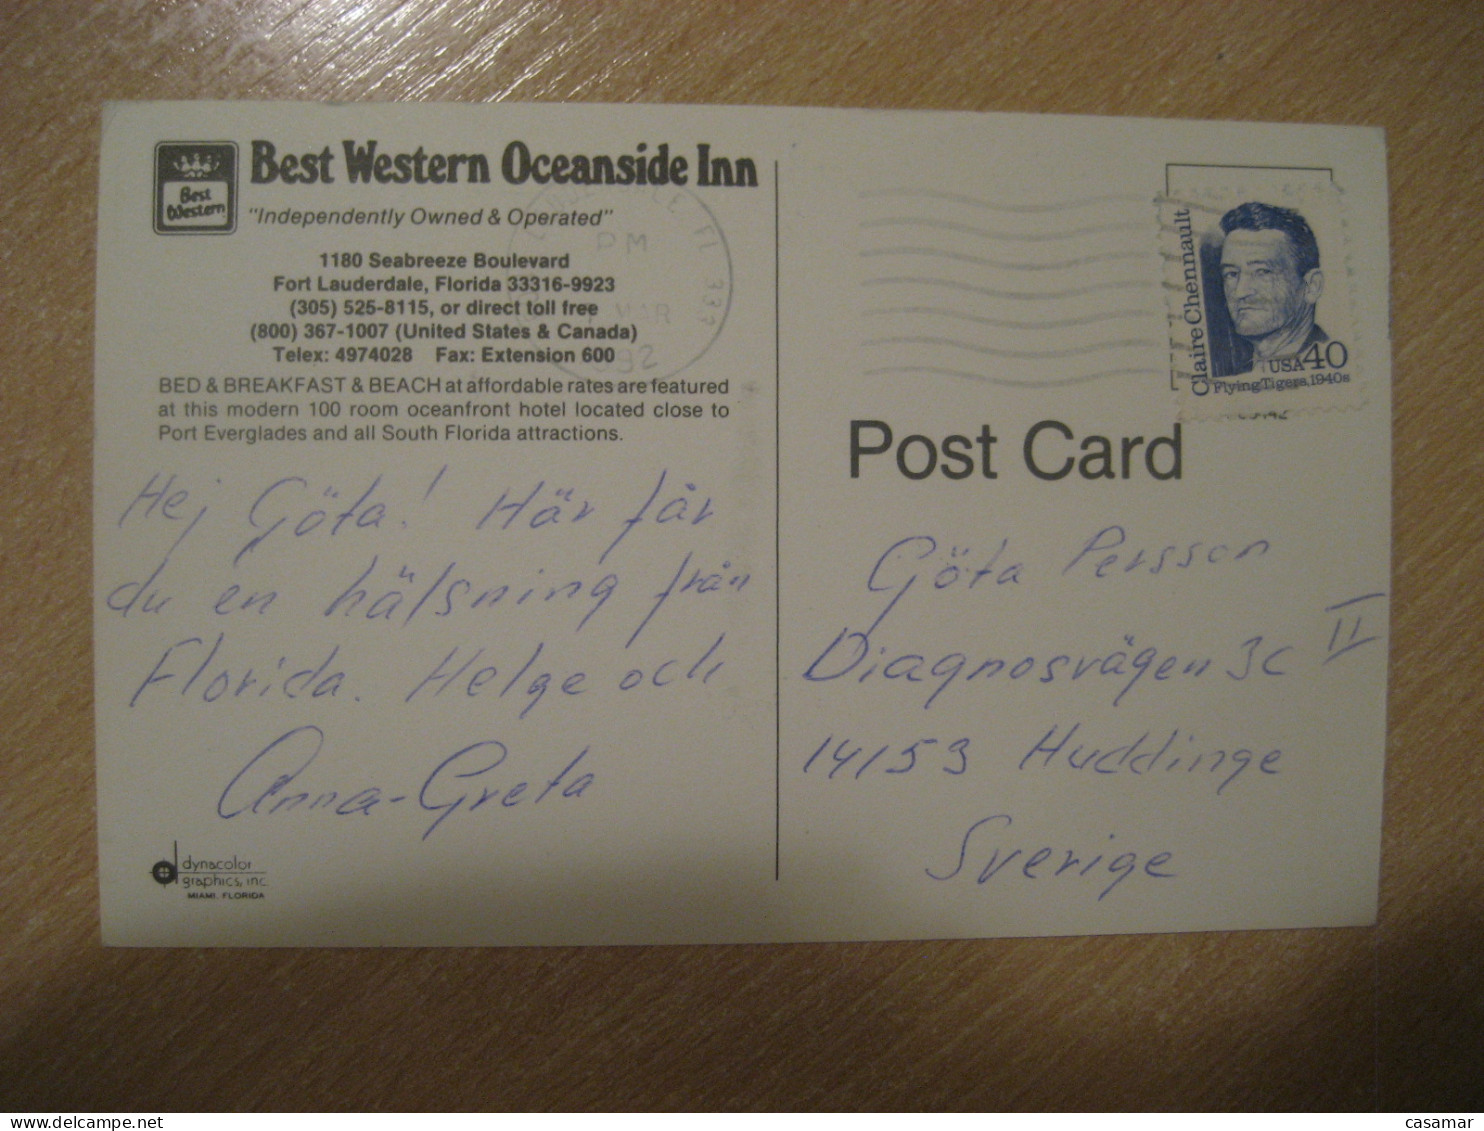 Best Western
Best Western Oceanside Inn
"Independently Owned & Operated"
1180 Seabreeze Boulevard
Fort Lauderdale, Florida 33316-9923
(305) 525-8115, or direct toll free
(800) 367-1007 (United States & Canada)
Telex: 4974028 Fax: Extension 600
BED & BREAKFAST & BEACH at affordable rates are featured
at this modern 100 room oceanfront hotel located close to
Port Everglades and all South Florida attractions.
Hej Göta! Här får
du en hälsning från
Florida. Helge och
Anna-Greta
dynacolor
graphics, inc.
MIAMI, FLORIDA
PM
Claire Chennault
USA 40
Flying Tigers, 1940s
Post Card
Göta Persson
Diagnosvägen 3C II
14153 Huddinge
Sverige
casamar